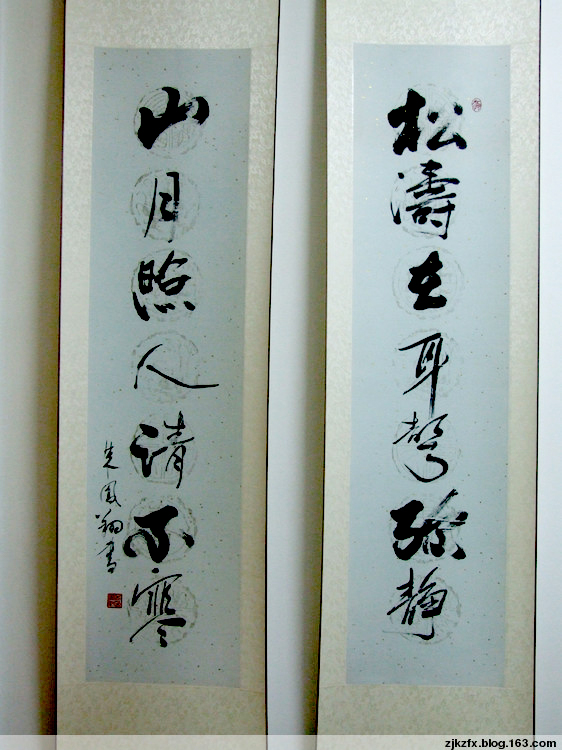 松濤在耳聲弥静
山月照人清不寒
鳳翔書
zjkzfx.blog.163.com